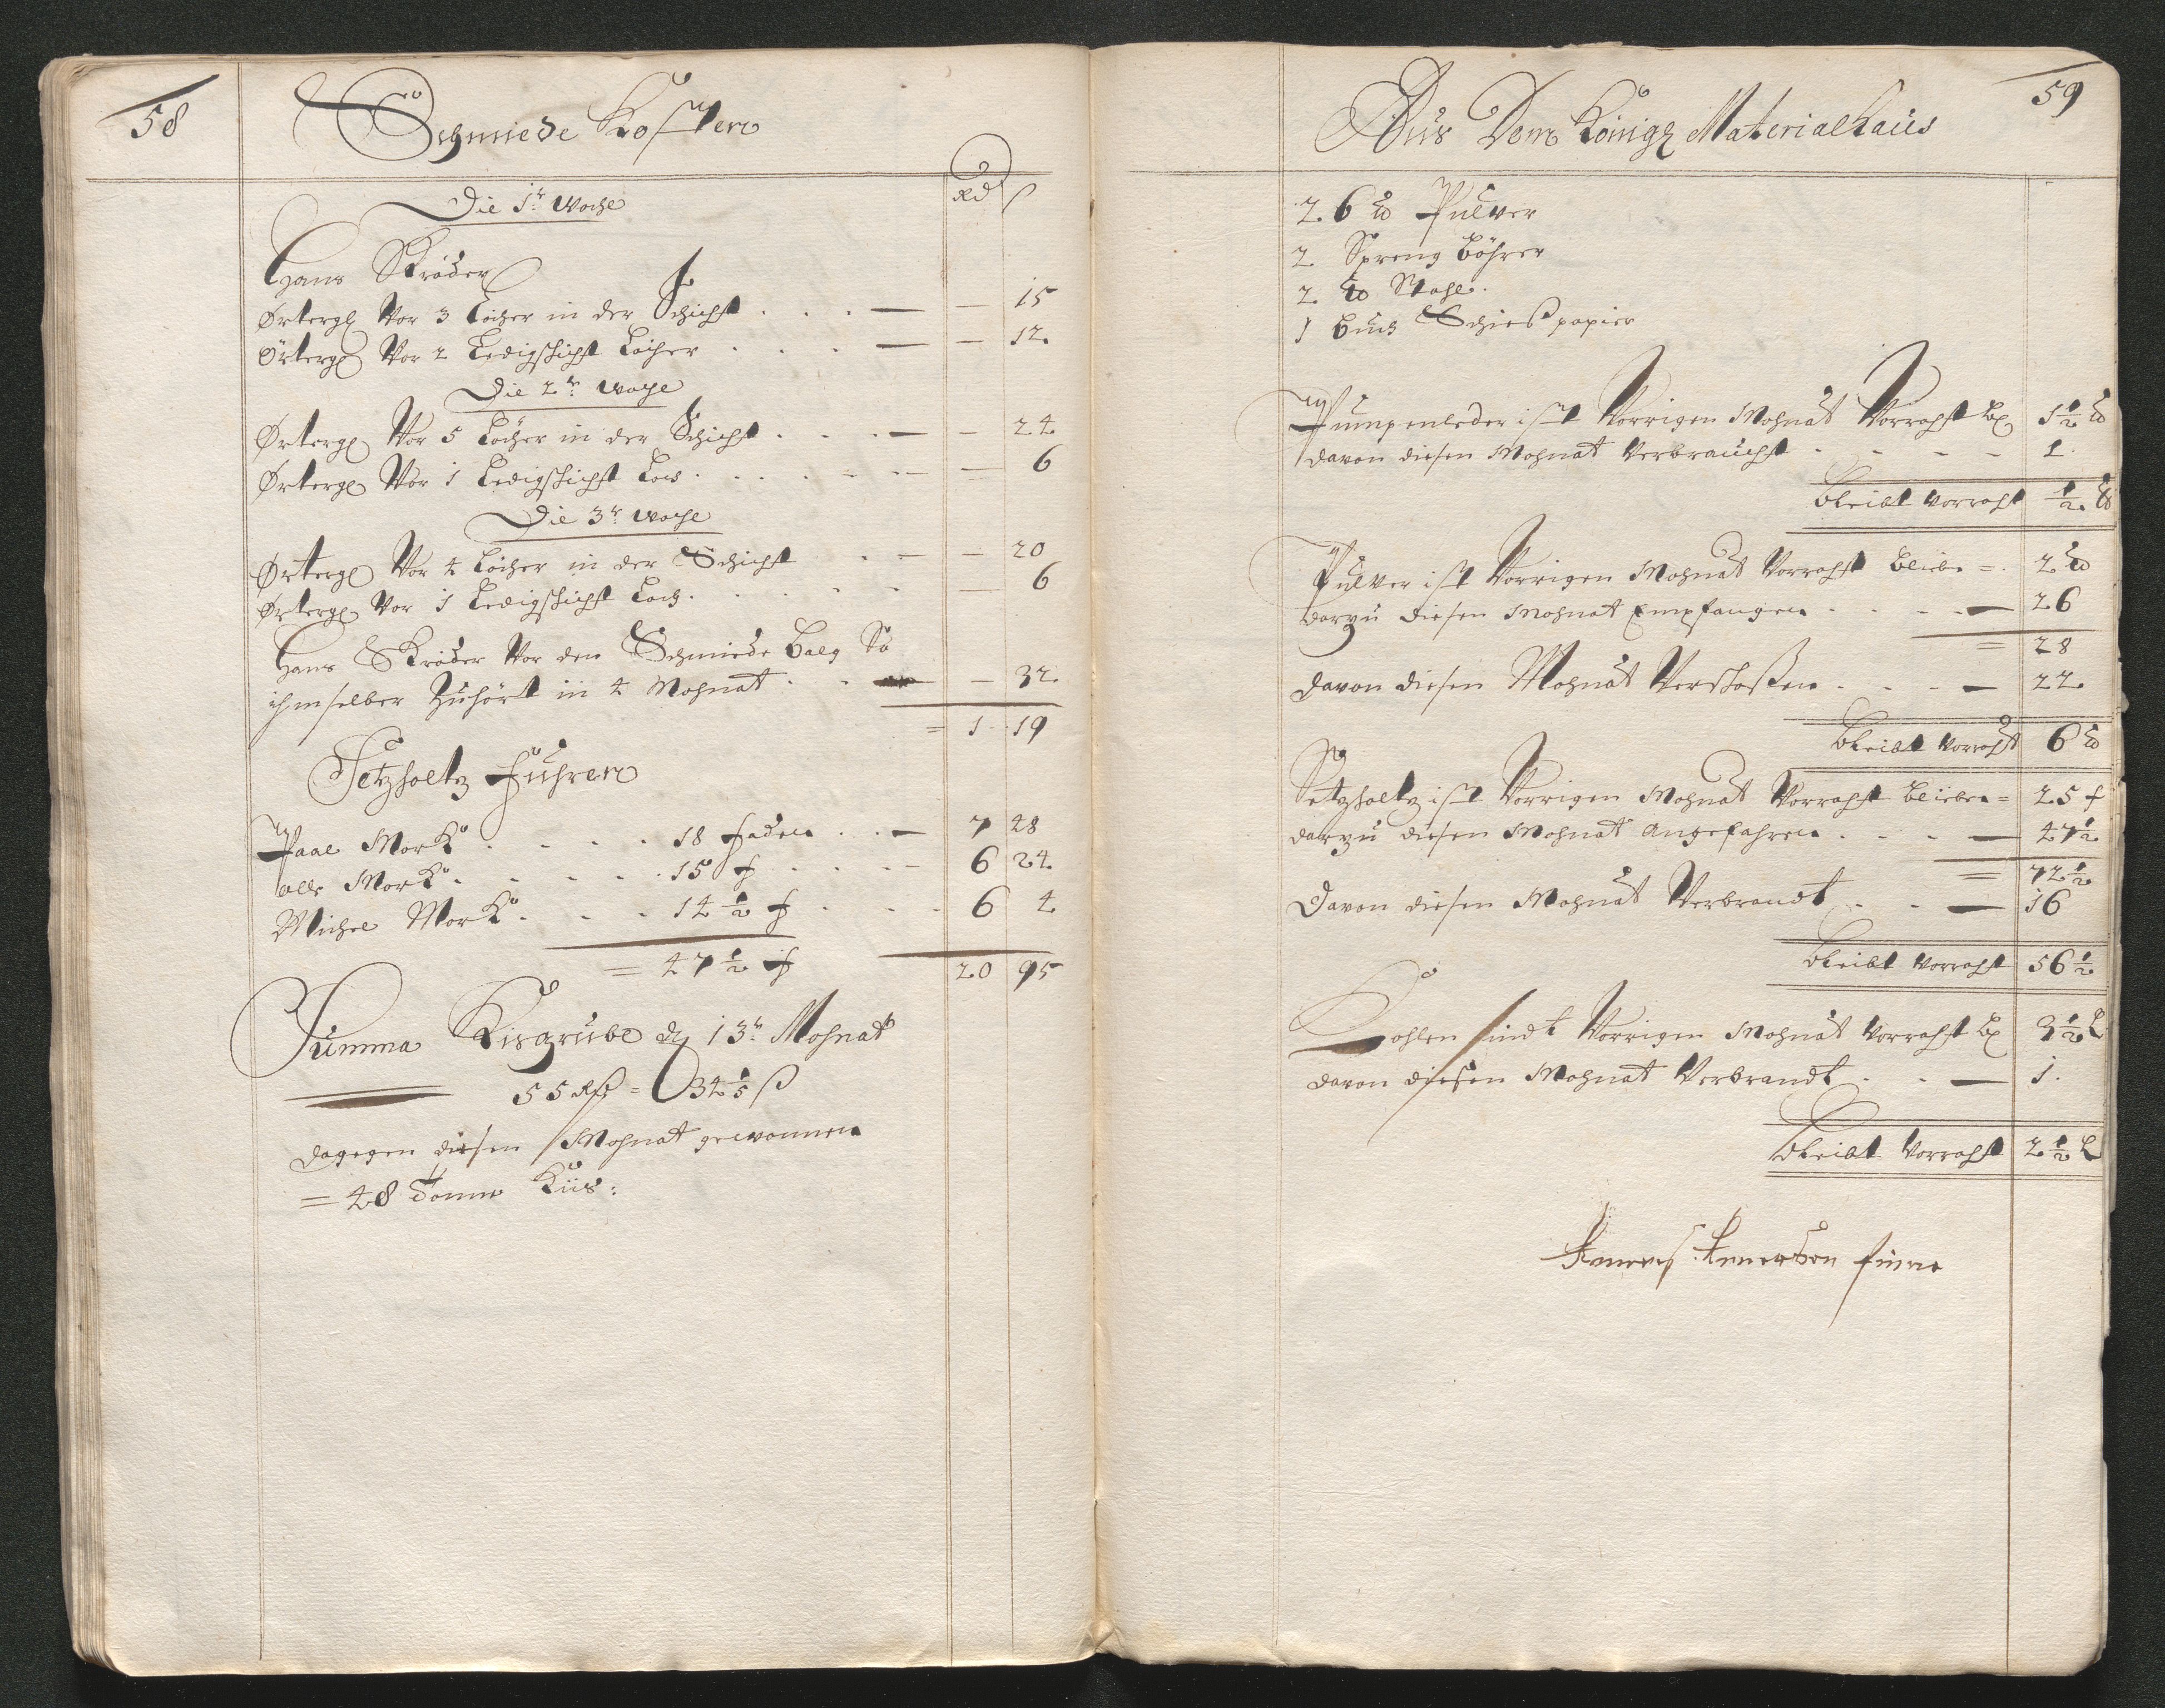 58
Schmiede Kosten
Rd ß
Die 1r. Woche
Hans Ströder
Örtergl Vor 3 Löcher in der Schicht . . . — — 15
Örtergl Vor 2 Ledigschicht Löcher . . . . — — 12.
Die 2r. Woche
Örtergl Vor 5 Löcher in der Schicht . . . — — 24
Örtergl Vor 1 Ledigschicht Loch . . . . . — — 6
Die 3r. Woche
Örtergl Vor 4 Löcher in der Schicht . — — 20
Örtergl Vor 1 Ledigschicht Loch . . . . . — 6
Hans Ströder Vor den Schmiede Balg So
ihm selber Zuhört in 4 Mohnat . . — — 32.
= 1 - 19
Setzholtz Fuhren
Paal Mork . . . . 18 faden . . — 7 48
olle Mork . . . . . 15 f . . . — 6 24
Michel Mork . . . 14 1/2 f . . . 6 4
= 47 1/2 f 20 95
Summa Kisgrube 13r. Mohnat
55 Rß = 34 1/5 ß
dagegen diesen Mohnat gewonnen
= 48 Tonne Kiis:
59
Aus Dem Königl Materialhaus
26 ℔ Pulver
2 Spreng böhrer
2 ℔ Stahl.
1 buch Schiesspapier
Pumpenleder ist Vorrigen Mohnat Vorraht bl 1 1/2 ℔
davon diesen Mohnat Verbraucht . - - - - 1.
bleibt Vorraht 1/2 ℔
Pulver ist Vorrigen Mohnat Vorraht bliebe = . 2 ℔
darzu diesen Mohnat Empfangen . . . . — 26
= 28
davon diesen Mohnat Verschossen . . . — 22.
bleibt Vorraht 6 ℔
Setzholtz ist Vorrigen Mohnat Vorraht blieben = 25 f
darzu diesen Mohnat Angefahren . . . . — 47 1/2
= 72 1/2
Davon diesen Mohnat Verbrandt . . — 16
bleibt Vorraht 56 1/2
Kohlen sindt Vorrigen Mohnat Vorraht bl 3 1/2 L
davon diesen Mohnat Verbrandt . . — 1.
bleibt Vorraht 2 1/2 L